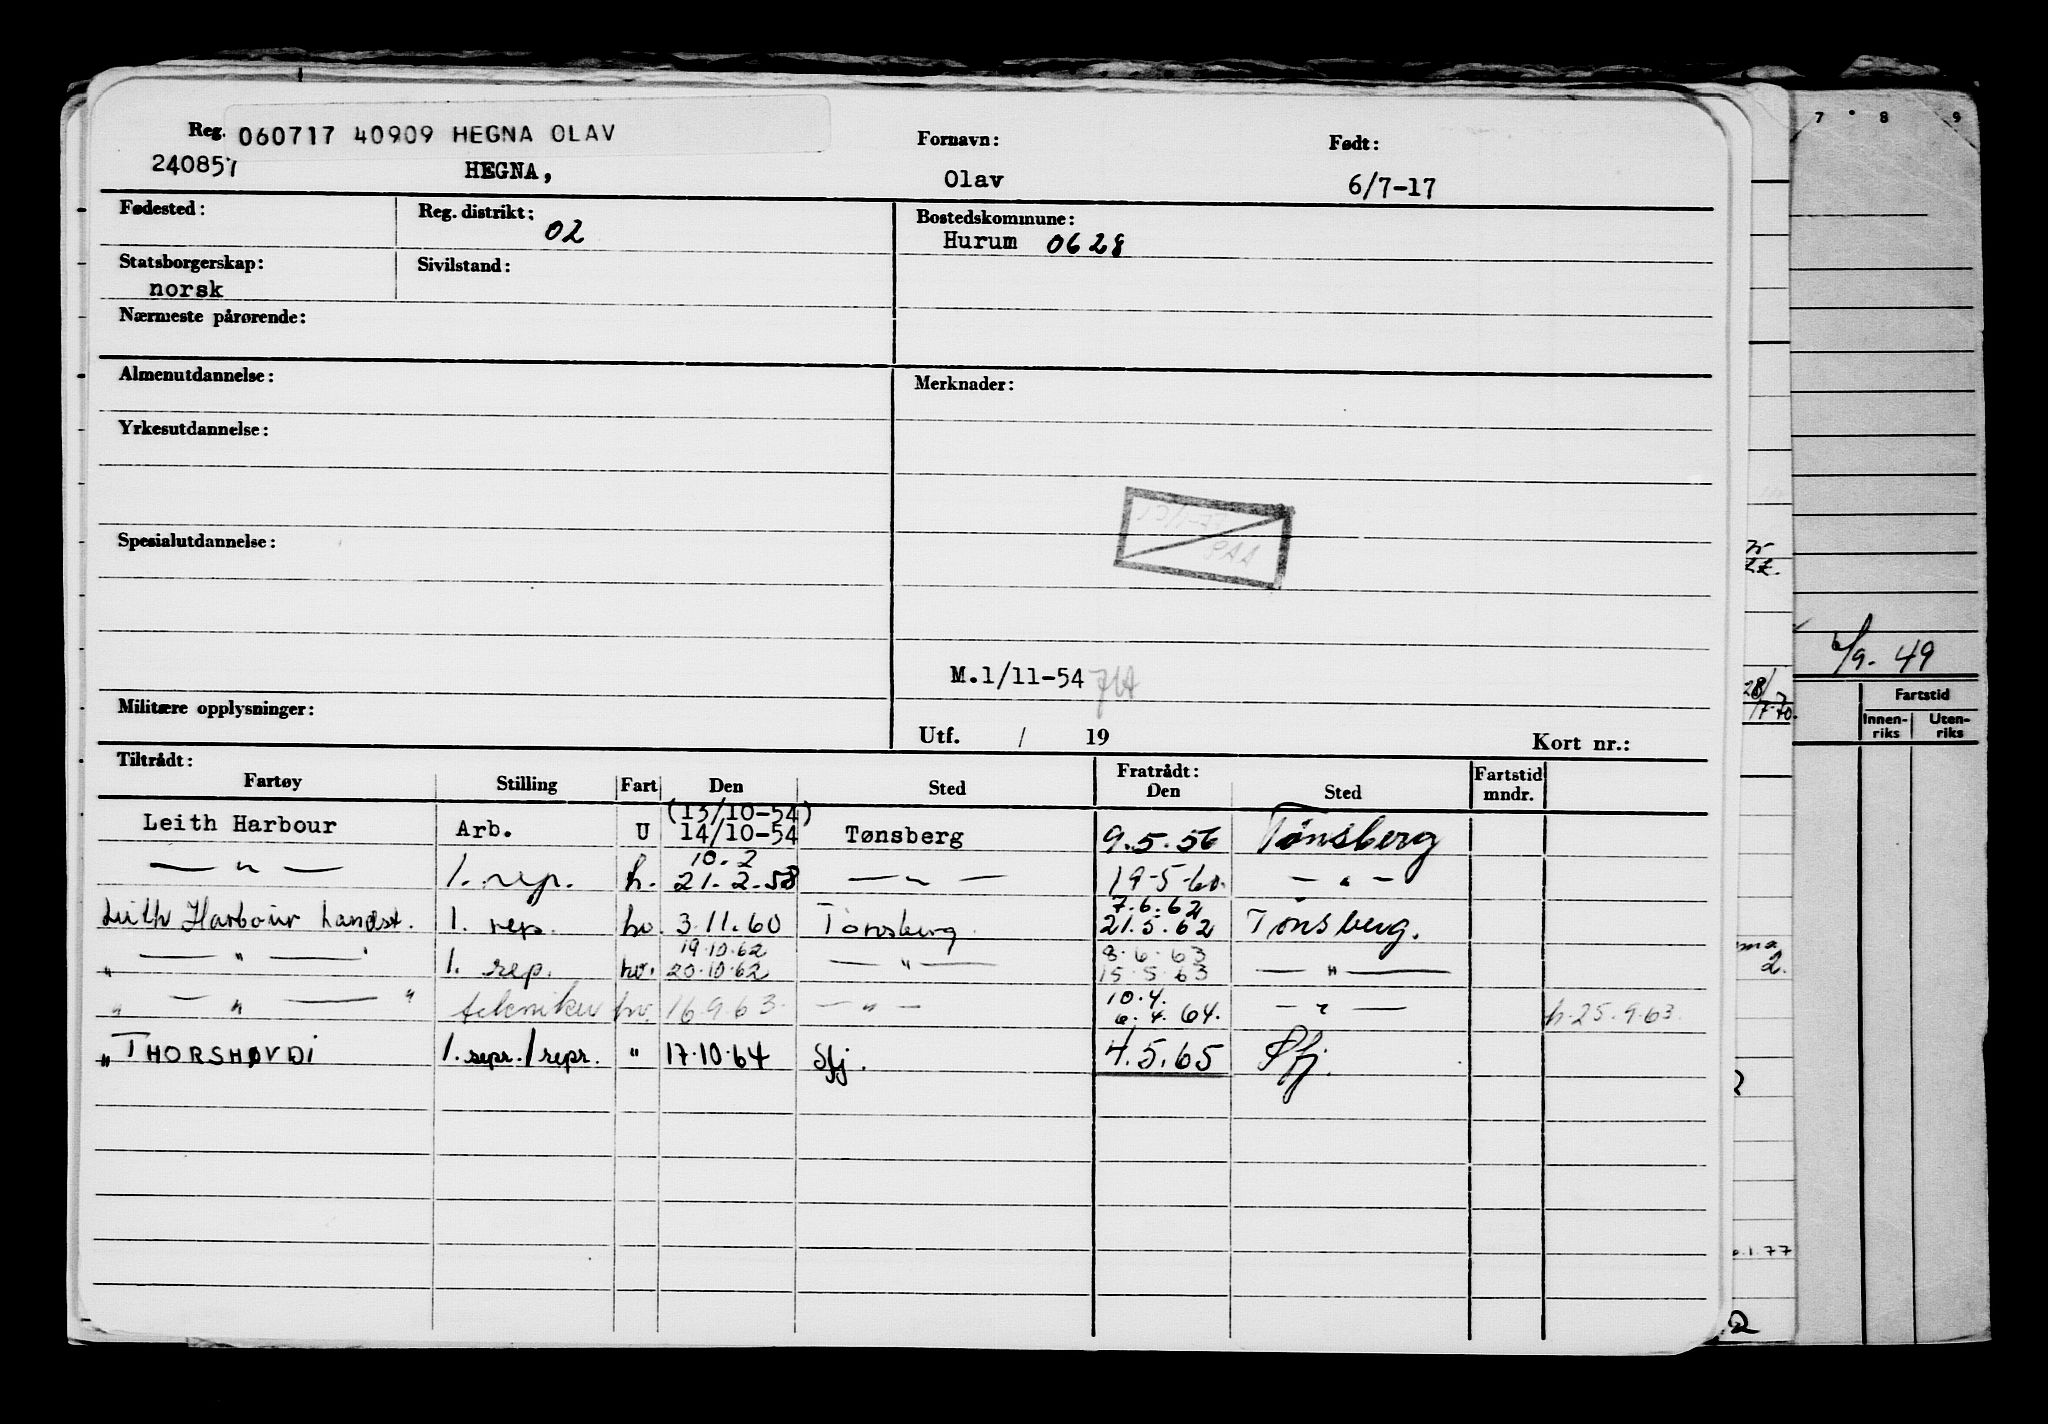 Reg. 060717 40909 HEGNA OLAV Fornavn: Født:
240857 HEGNA, Olav 6/7-17
Fødested: Reg. distrikt: 02 Bostedskommune:
Hurum 0628
Statsborgerskap: Sivilstand:
norsk
Nærmeste pårørende:
Almenutdannelse: Merknader:
Yrkesutdannelse:
Spesialutdannelse:
PAA
M.1/11-54
Militære opplysninger:
Utf. / 19 Kort nr.:
Tiltrådt: Fratrådt: Fartstid
Fartøy Stilling Fart Den Sted Den Sted mndr.
(13/10-54)
Leith Harbour Arb. U 14/10-54 Tønsberg 9.5.56 Tønsberg
10.2
— " — 1. rep. h. 21.2.58 — " — 19-5-60. — " —
7.6.62
Leith Harbour Landst. 1. rep. hv. 3.11.60 Tønsberg. 21.5.62 Tønsberg.
19.10.62 8.6.63
" — " — 1. rep. hv. 20.10.62 — " — 15.5.63 — " —
10.4.
" — " — " tekniker hv. 16.9.63. — " — 6.4.64. — " — h.25.9.63.
" THORSHØVDI 1. repr./repr. " 17.10.64 Sfj. 4.5.65 Sfj.
7 8 9
6/9. 49
Fartstid
Innenriks Utenriks
28/
/7.70.
2.
.1.77
2